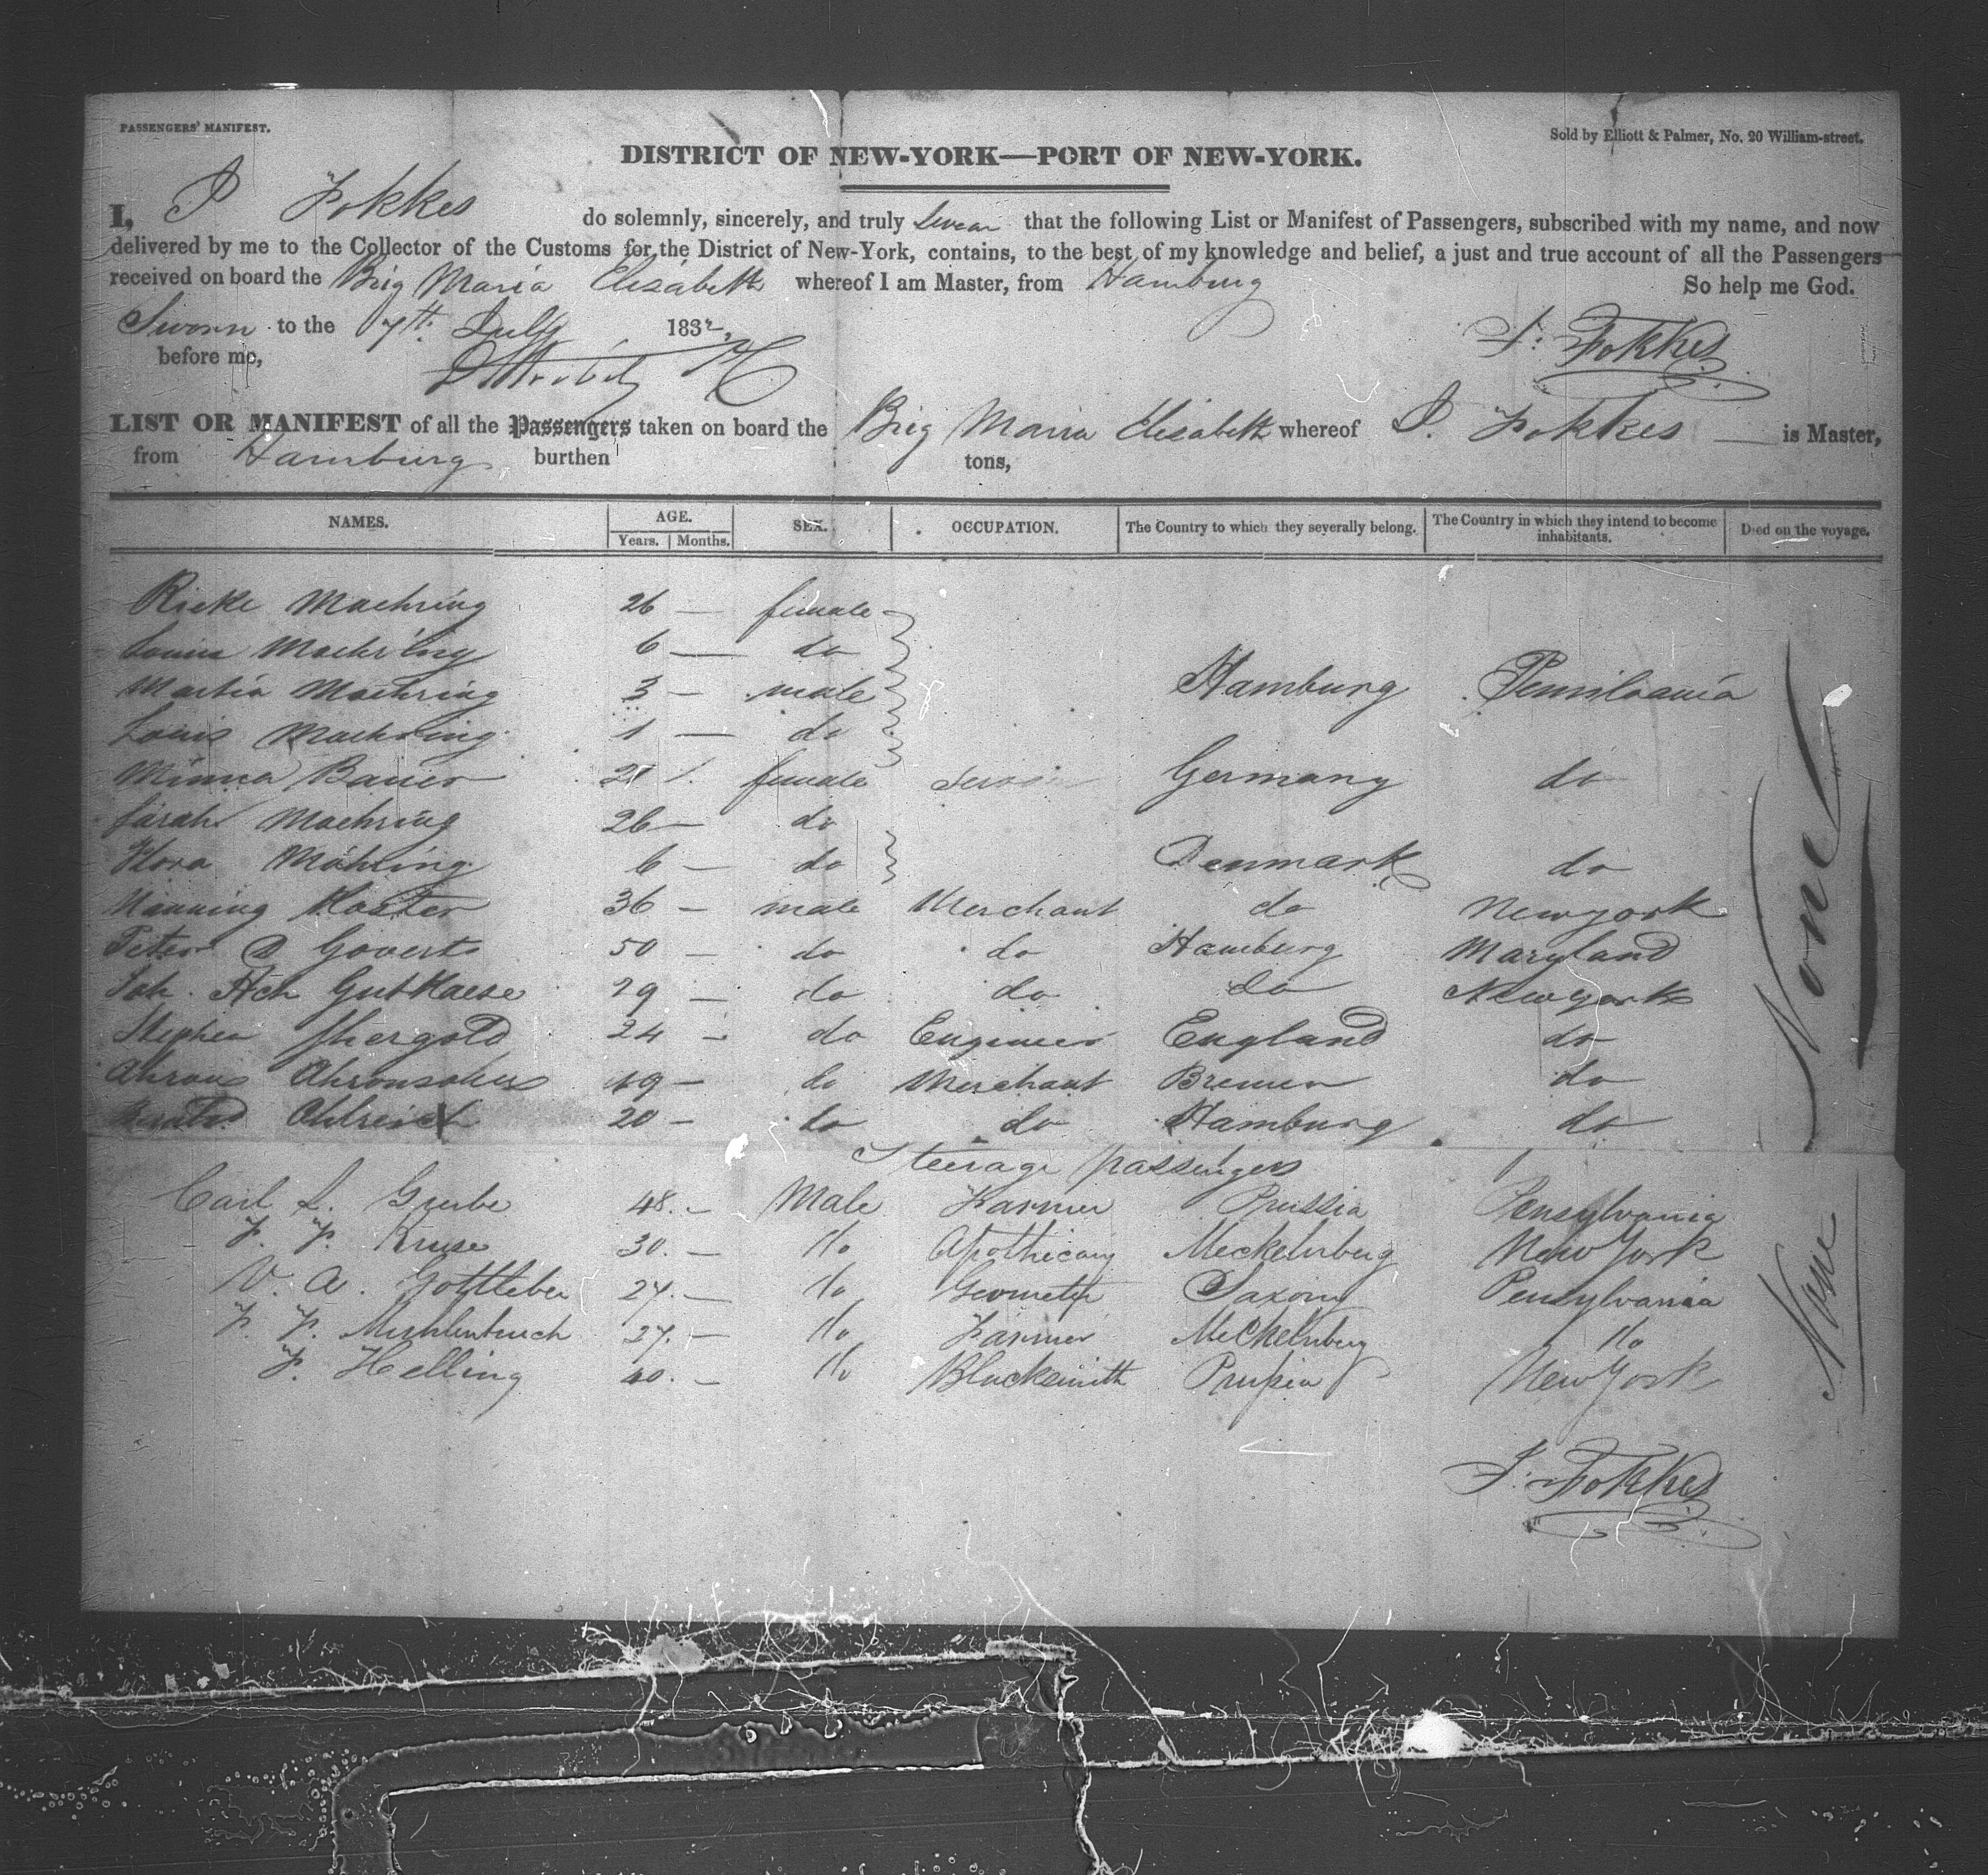 PASSENGERS' MANIFEST.
Sold by Elliott & Palmer, No. 20 William-street.
DISTRICT OF NEW-YORK—PORT OF NEW-YORK.
I, Fokkes do solemnly, sincerely, and truly swear that the following List or Manifest of Passengers, subscribed with my name, and now
delivered by me to the Collector of the Customs for the District of New-York, contains, to the best of my knowledge and belief, a just and true account of all the Passengers
received on board the Brig Maria Elisabeth whereof I am Master, from Hamburg So help me God.
Sworn to the 7th July 1832, Fokkes
before me,
LIST OR MANIFEST of all the Passengers taken on board the Brig Maria Elisabeth whereof Fokkes is Master,
from Hamburg burthen tons,
NAMES. AGE. Years. Months. SEX. OCCUPATION. The Country to which they severally belong. The Country in which they intend to become inhabitants. Died on the voyage.
Rieke Maehring 26 — female
Louisa Maehring 6 — do
Martin Maehring 3 — male Hamburg Pensilvania
Louis Maehring 1 — do
Minna Bauer female Germany do
Sarah Maehring 26 — do
Flora Mähring 6 — do Denmark do
Manning 36 — male Merchant do Newyork
Peter D Goverts 50 — do do Hamburg Maryland
Joh. Hch Gutkaese 29 — do do do Newyork
Stephen Shergold 24 - do Engineer England do
Ahrons Ahronsohn 49 — do Merchant Bremen do
Ohlreich 20 — do do Hamburg do
None
Steerage passengers
Carl L. Grube 48. — Male Farmer Prussia Pensylvania
F. F. Kruse 30. — do Apothecary Meckelnberg New York
V. A. Gottleber 24. — do Geometer Saxony Pensylvania
F. F. 27. — do Farmer Meckelnberg do
F. Helling 40. — do Blacksmith Prussia New York
None
Fokkes